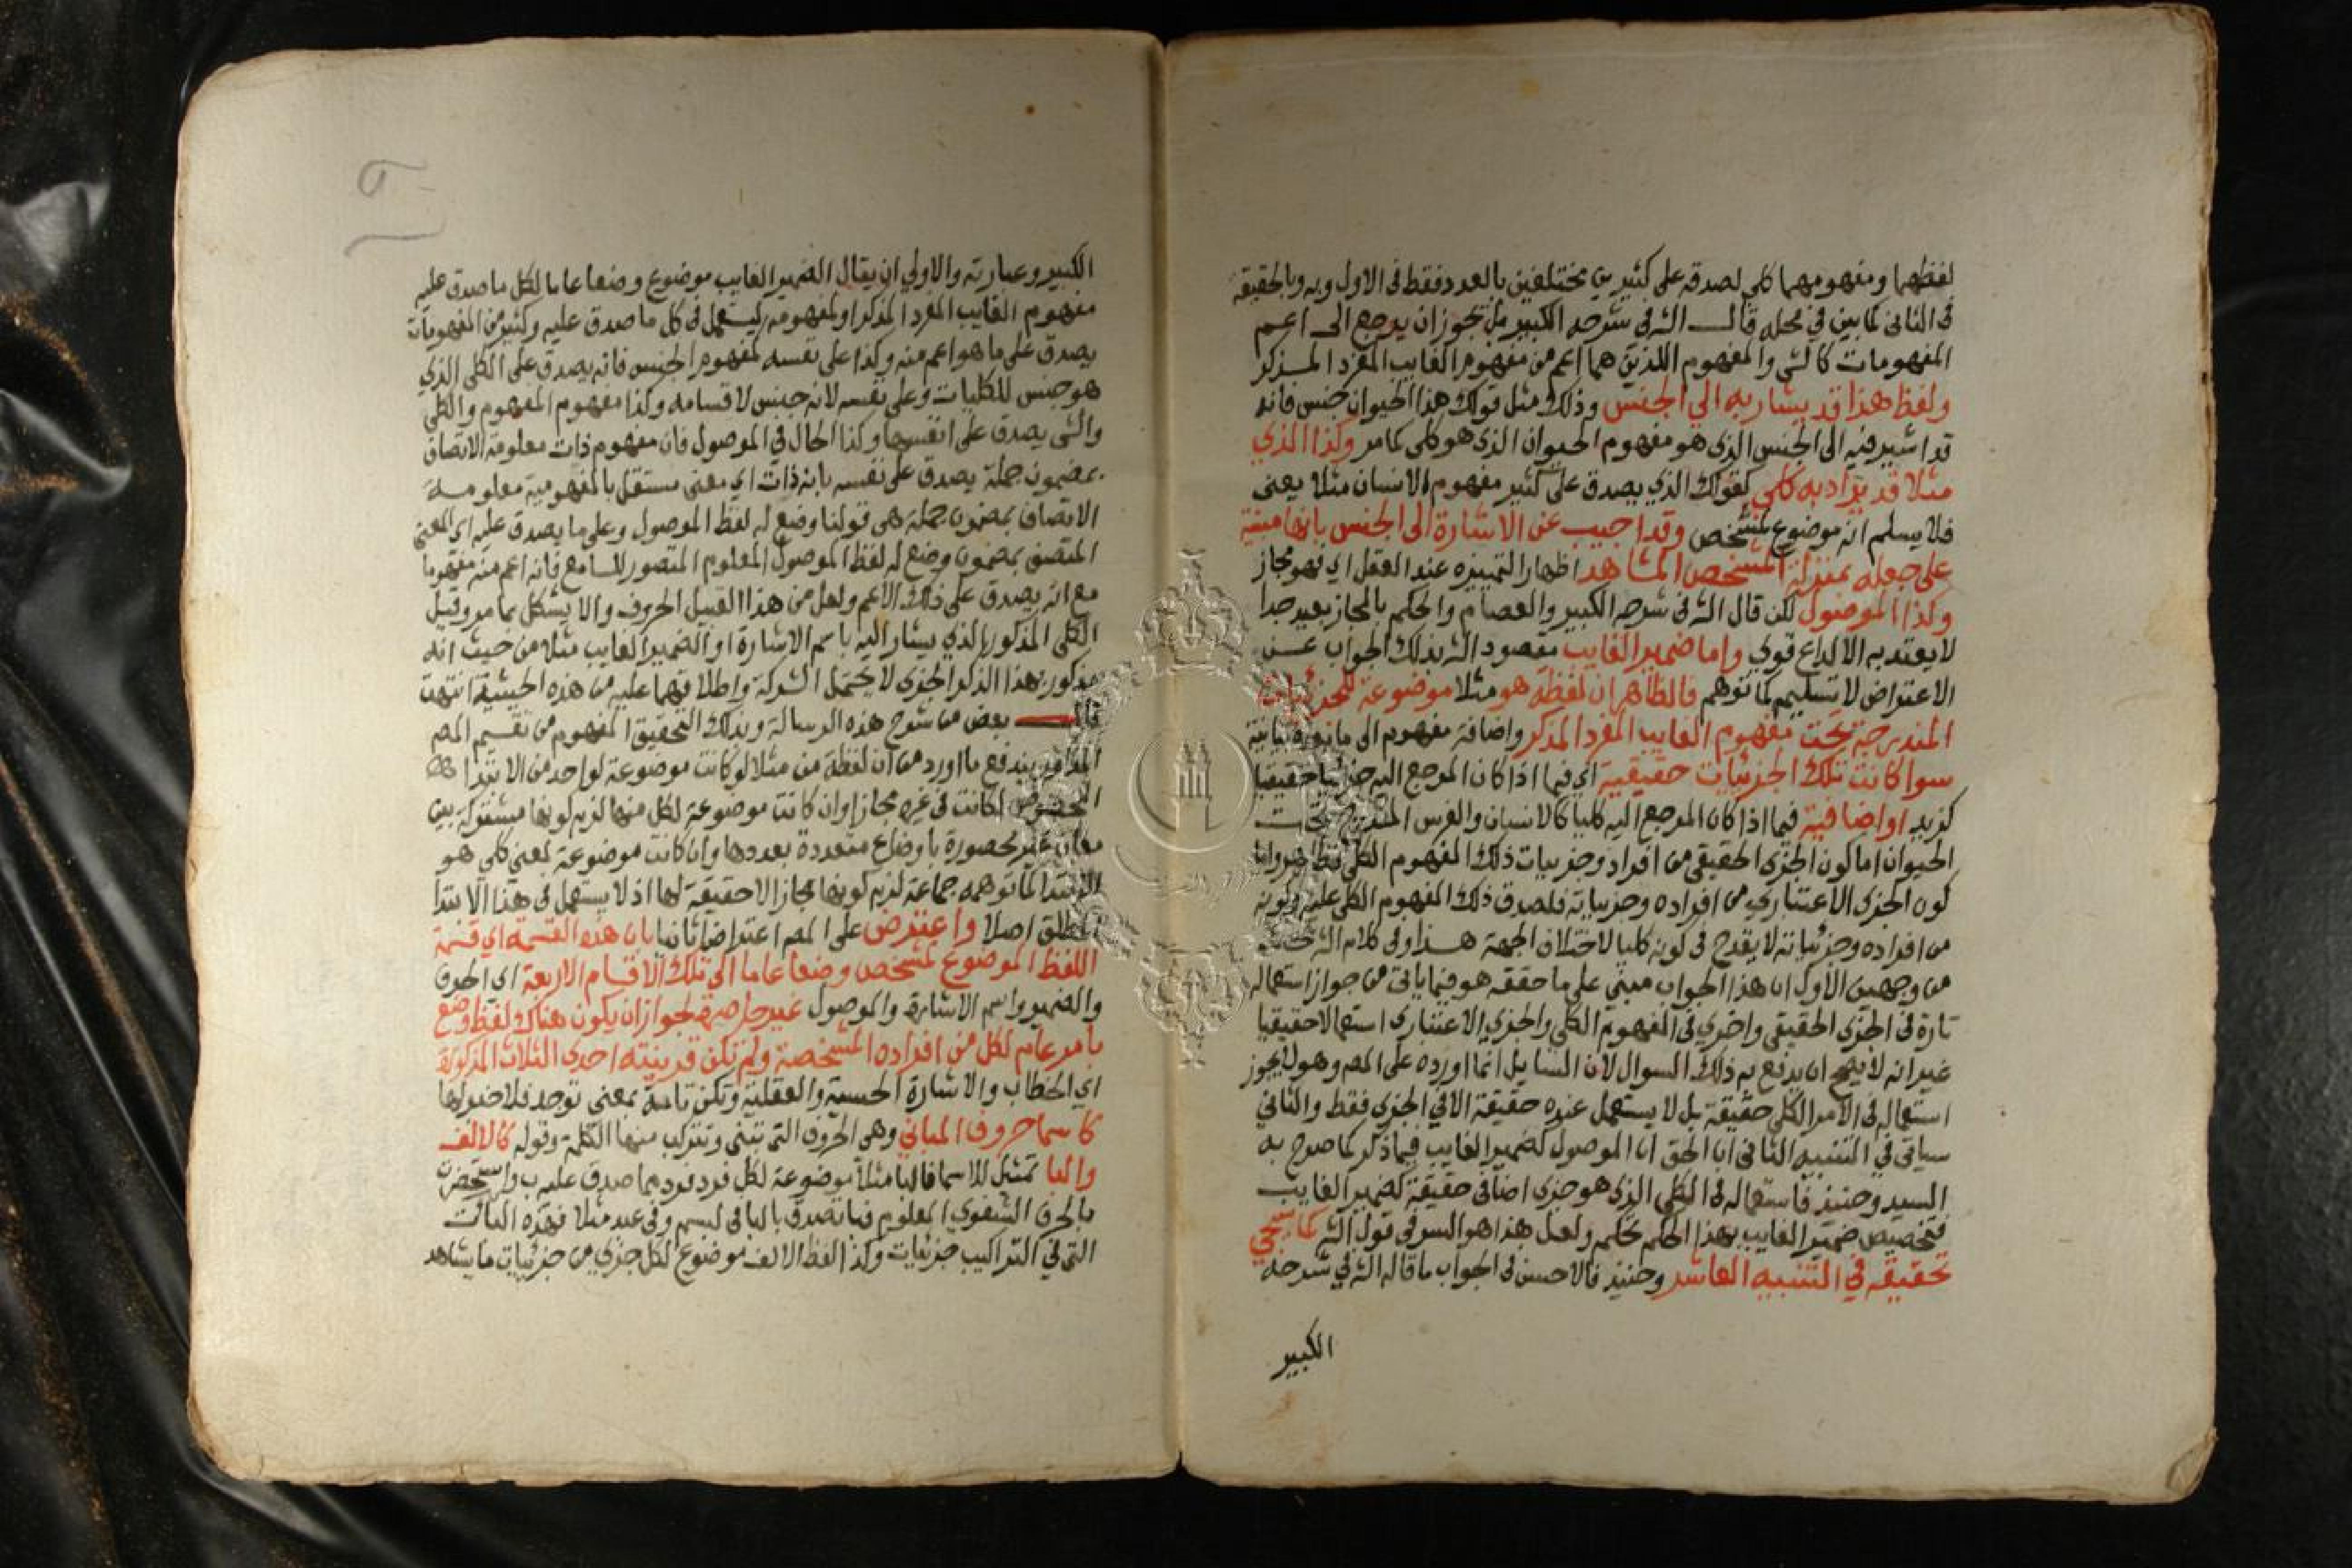 لفظهما ومفهومهما كلي لصدقه على كثيرين مختلفين بالعدد فقط في الاول وبه وبالحقيقة
في الثاني كما بين في محله قال الش في شرحه الكبير بل تجوز ان يرجع الى اعم
المفهومات كالشي والمفهوم اللذين هما اعم من مفهوم الغايب المفرد المذكر
ولفظ هذا قد يشار به الي الجنس وذلك مثل قولك هذا الحيوان جنس فانه
قد اشير فيه الى الجنس الذي هو مفهوم الحيوان الذي هو كلي كما مر وكذا الذي
مثلا قد يراد به كلي كقولك الذي يصدق على كثير مفهوم الانسان مثلا يعني
فلا يسلم انه موضوع لمشخص وقد اجيب عن الاشارة الى الجنس بانها مبنية
على جعله بمنزلة المشخص المشاهد اظهارا لتميزه عند العقل اي فهو مجاز
وكذا الموصول لكن قال الش في شرحه الكبير والعصام والحكم بالمجاز بعيد جدا
لا يعتد به الا لداع قوي واما ضمير الغايب مقصود الش بذلك الجواب عن
الاعتراض لا تسليم لما توهم فالظاهر ان لفظة هو مثلا موضوعة للجزئيات
المندرجة تحت مفهوم الغايب المفرد المذكر واضافة مفهوم الى ما بعده بيانية
سوا كانت تلك الجزئيات حقيقية اي فيما اذا كان المرجع اليه جزئيا حقيقيا
كزيد او اضافية فيما اذا كان المرجع اليه كليا كالانسان والفرس المندرج تحت
الحيوان اما كون الجزي الحقيقي من افراد وجزييات ذلك المفهوم الكلي فظاهر واما
كون الجزي الاعتباري من افراده وجزيياته فلصدق ذلك المفهوم الكلي عليه وكونه
من افراده وجزئياته لا يقدح في كونه كليا لاختلاف الجهة هذا وفي كلام الش بحث
من وجهين الاول ان هذا الجواب مبني على ما حققه هو فيما ياتي من جواز استعماله
تارة في الجزي الحقيقي واخري في المفهوم الكلي والجزي الاعتباري استعمالا حقيقيا
غير انه لا يصح ان يدفع به ذلك السوال لان السايل انما اورده على المص وهو لا يجوز
استعماله في الامر الكلي حقيقة بل لا يستعمل عنده حقيقة الا في الجزي فقط والثاني
سياتي في التنبيه الثاني ان الحق ان الموصول كضمير الغايب فيما ذكر كما صرح به
السيد وحينيذ فاستعماله في الكلي الذي هو جزي اضافي حقيقة كضمير الغايب
فتخصيص ضمير الغايب بهذا الحكم تحكم ولعل هذا هو السر في قول الش كما سيجي
تحقيقه في التنبيه العاشر وحينيذ فالاحسن في الجواب ما قاله الش في شرحه
الكبير
الكبير وعبارته والاولي ان يقال الضمير الغايب موضوع وضعا عاما لكل ما صدق عليه
مفهوم الغايب المفرد المذكر او لمفهومه ليستعمل في كل ما صدق عليه وكثير من المفهومات
يصدق على ما هو اعم منه وكذا على نفسه كمفهوم الجنس فانه يصدق على الكلي الذي
هو جنس للكليات وعلى نفسه لانه جنس لاقسامه وكذا مفهوم المفهوم والكلي
والشي يصدق على انفسها وكذا الحال في الموصول فان مفهوم ذات معلومة الاتصاف
بمضمون جملة يصدق على نفسه بانه ذات اي معنى مستقل بالمفهومية معلومة
الاتصاف بمضمون جملة هي قولنا وضع له لفظ الموصول وعلى ما يصدق عليه اي المعنى
المتصف بمضمون وضع له لفظ الموصول المعلوم المتصور للسامع فانه اعم منه مفهوما
مع انه يصدق على ذلك الاعم ولعل من هذا القبيل الحروف والا يشكل بما مر وقيل
الكلي المذكور الذي يشار اليه باسم الاشارة او الضمير الغايب مثلا من حيث انه
مذكور بهذا الذكر الجزي لا يحتمل الشركة واطلاقهما عليه من هذه الحيثية انتهت
قال بعض من شرح هذه الرسالة وبذلك التحقيق المفهوم من تقسيم المص
يندفع ما اورد من ان لفظة من مثلا لو كانت موضوعة لواحد من الابتدا
المخصوص لكانت في غيره مجازا وان كانت موضوعة لكل منها لزم كونها مشتركة بين
معان غير محصورة باوضاع متعددة بعددها وان كانت موضوعة لمعنى كلي هو
الابتدا كما توهمه جماعة لزم كونها مجازا لا حقيقة لها اذ لا يستعمل في هذا الابتدا
المطلق اصلا واعترض على المص اعتراضا ثانيا بان هذه القسمة اي قسمة
اللفظ الموضوع لمشخص وضعا عاما الى تلك الاقسام الاربعة اي الحرف
والضمير واسم الاشارة والموصول غير حاصرة لجواز ان يكون هناك لفظ وضع
بامر عام لكل من افراده المشخصة ولم تكن قرينته احدى الثلاث المذكورة
اي الخطاب والاشارة الحسية والعقلية وتكن تامة بمعنى توجد فلا خبر لها
كاسما حروف المباني وهي الحروف التي تبنى وتتركب منها الكلمة وقوله كالالف
والبا تمثيل للاسما فالبا مثلا موضوعة لكل فرد فرد مما صدق عليه ب واستحضرت
بالحرف الشفوي المعلوم فيما تصدق بالبا في لبسم وفي عبد مثلا فهذه البائت
التي في التراكيب جزئيات وكذا لفظ الالف موضوع لكل جزي من جزئيات ما يشاهد